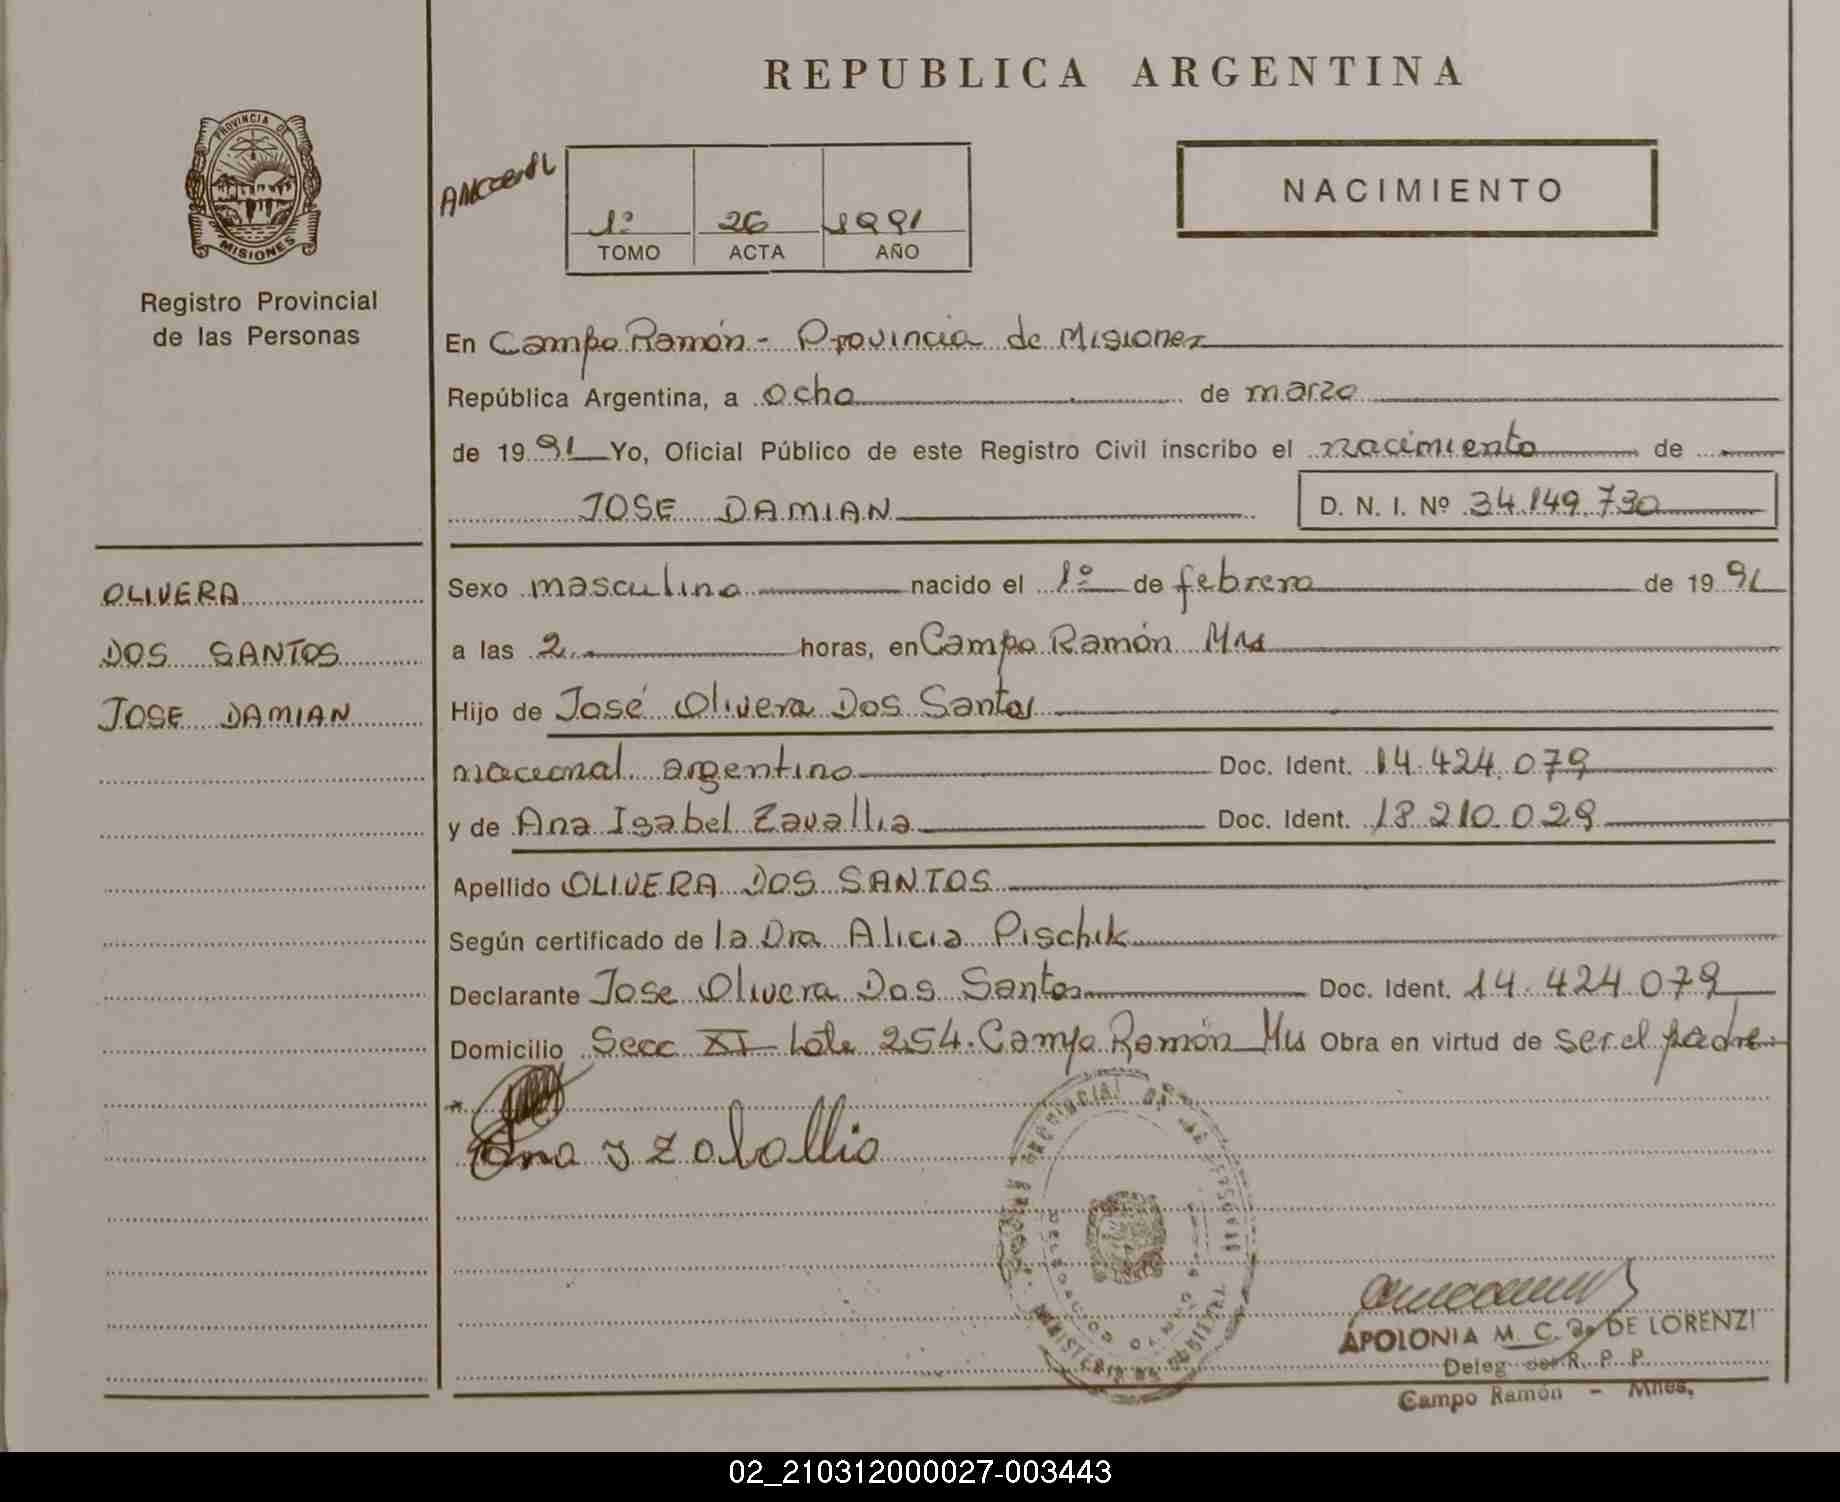 REPUBLICA ARGENTINA
PROVINCIA DE
MISIONES
Registro Provincial
de las Personas
1º 26 1991
TOMO ACTA AÑO
NACIMIENTO
En Campo Ramón - Provincia de Misiones
República Argentina, a ocho de marzo
de 19 91 Yo, Oficial Público de este Registro Civil inscribo el nacimiento de
JOSE DAMIAN
D. N. I. Nº 34.149.730
OLIVERA
DOS SANTOS
JOSE DAMIAN
Sexo masculino nacido el 1º de febrero de 19 91
a las 2 horas, en Campo Ramón Mns
Hijo de José Olivera Dos Santos
nacional argentino Doc. Ident. 14.424.079
y de Ana Isabel Zavallia Doc. Ident. 18.210.029
Apellido OLIVERA DOS SANTOS
Según certificado de la Dra Alicia Pischik
Declarante Jose Olivera Dos Santos Doc. Ident. 14.424.079
Domicilio Secc XI Lote 254. Campo Ramón Mns Obra en virtud de ser el padre
Ana y zaballia
APOLONIA M. C. de DE LORENZI
Deleg del R. P. P.
Campo Ramón - Mnes,
02_210312000027-003443